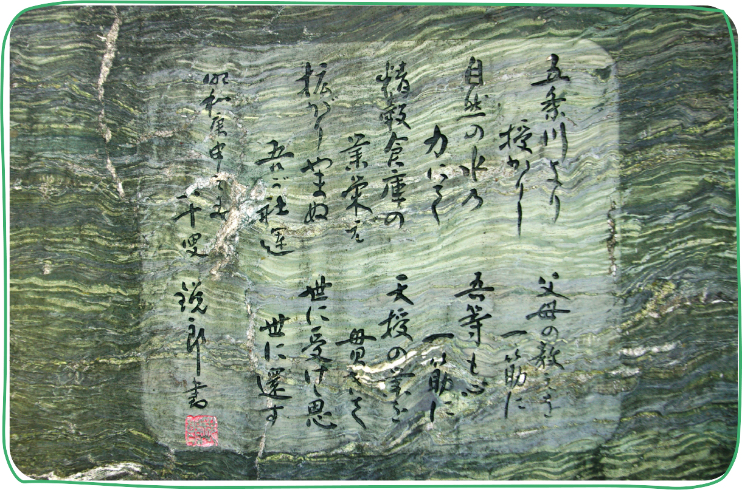 五条川より
授かりし
自然の水の
力にて
精穀倉庫の
業栄え
拡がりやまぬ
吾が社運
父母の教えを
一筋に
吾等も心
一筋に
天授の業を
貫きて
世に受けし恩
世に還す
昭和庚申
郎書